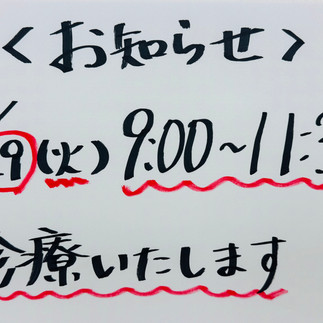 <お知らせ>
9(火) 9:00~11:3
診療いたします